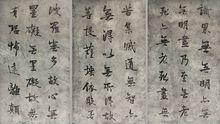 識界無無明亦無
無明盡乃至無老
死亦無老死盡無
苦集滅道無智亦
無得以無所得故
菩提薩埵依般若
波羅蜜多故心無
罣礙無罣礙故無
有恐怖遠離顛